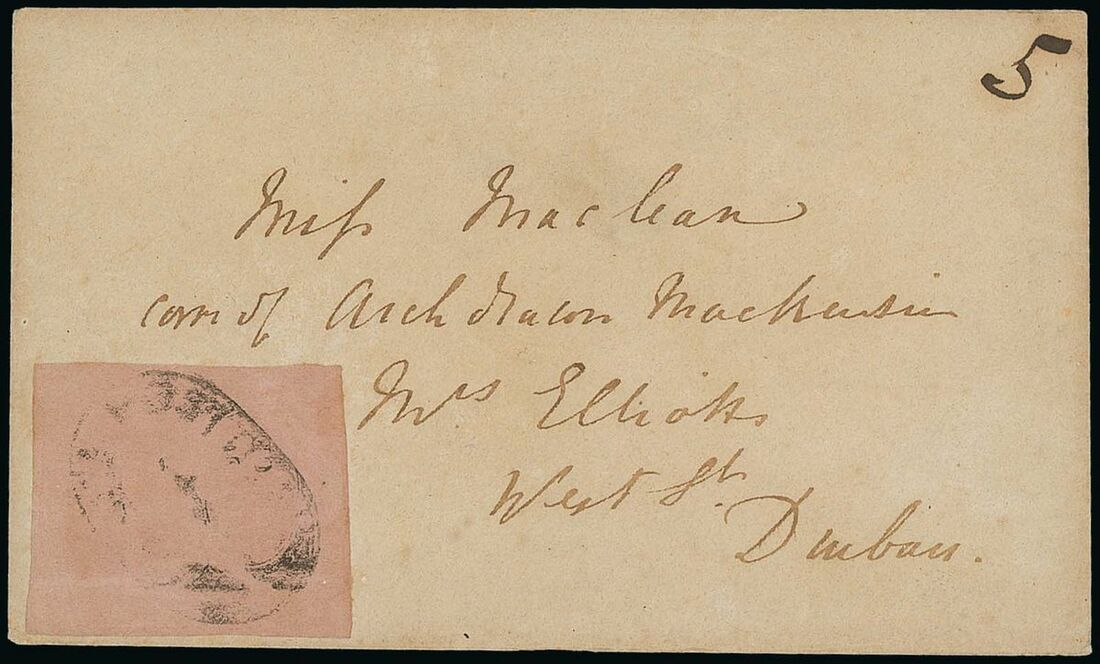 5
Miss Maclean
care of Archdeacon Mackenzie
Mrs Elliotts
West St.
Durban.